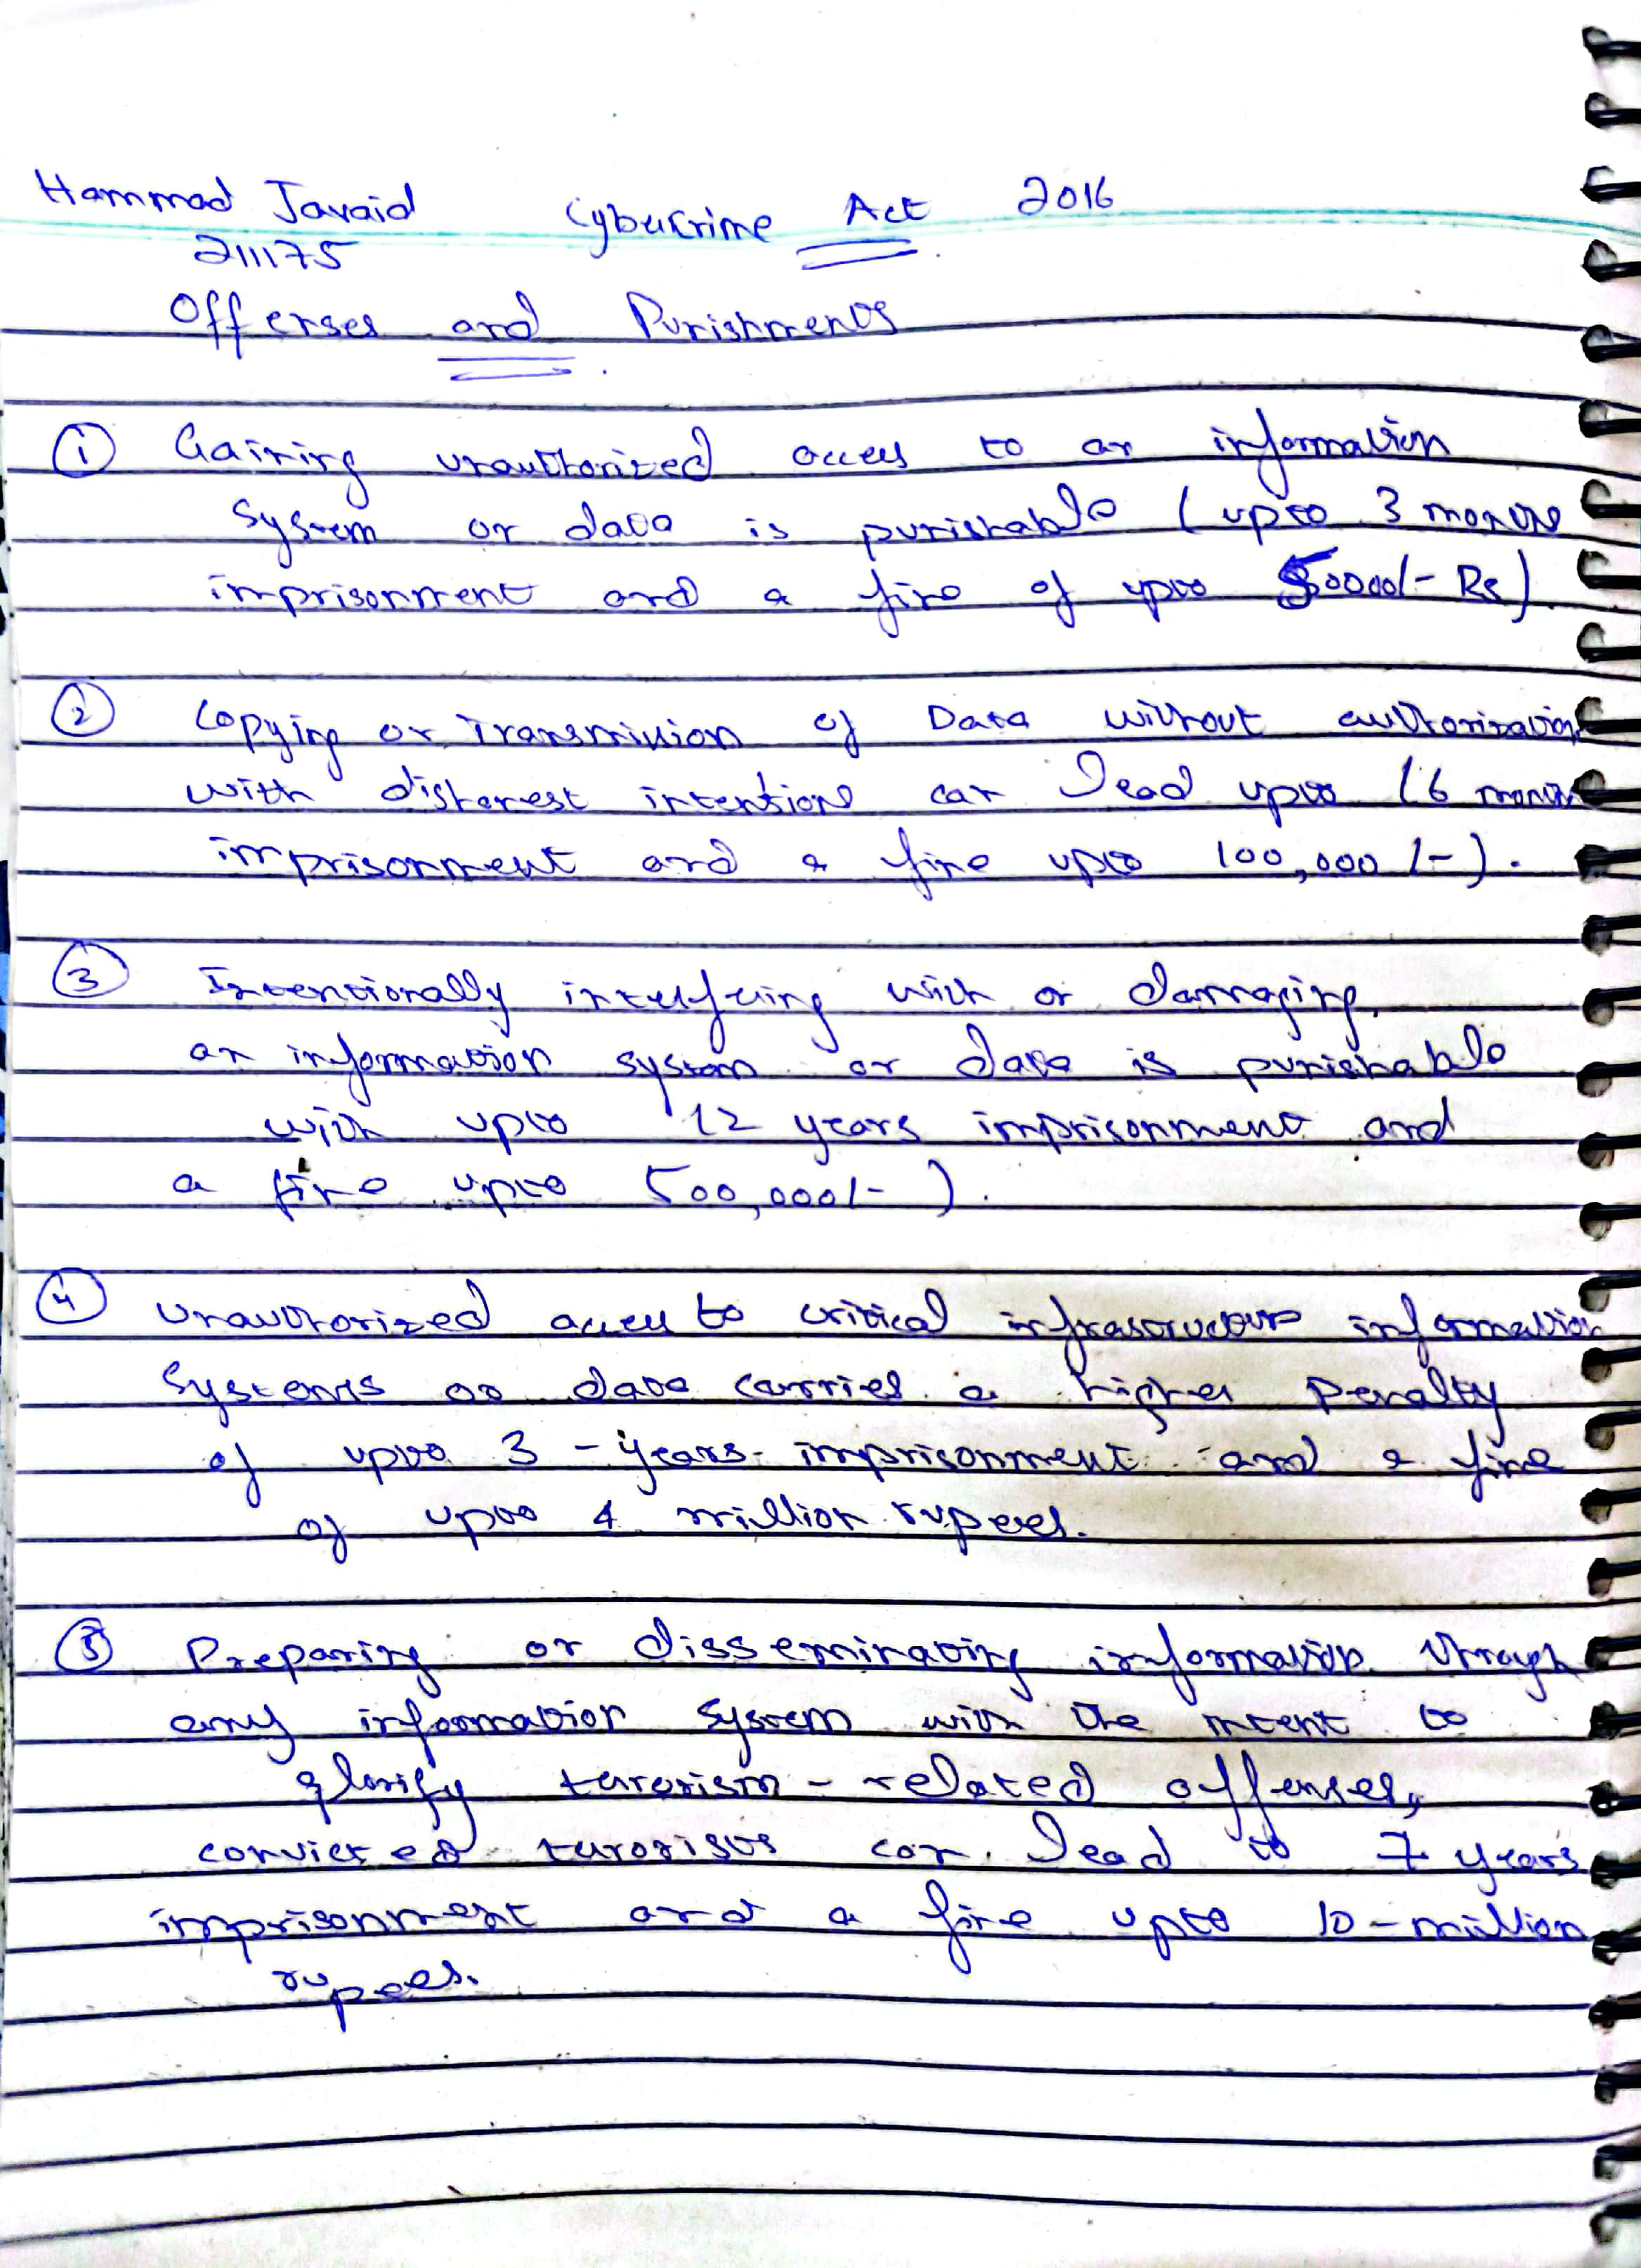 Hammad Javaid Cybercrime Act 2016
211175
Offenses and Punishments
① Gaining unauthorized access to an information
system or data is punishable (upto 3 months
imprisonment and a fine of upto 50000/- Rs)
② Copying or Transmission of Data without authorization
with dishonest intentions can lead upto (6 months
imprisonment and a fine upto 100,000/-).
③ Intentionally interfering with or damaging
an information system or data is punishable
with upto (2 years imprisonment and
a fine upto 500,000/-).
④ Unauthorized access to critical infrastructure information
systems or data carries a higher penalty
of upto 3-years imprisonment and a fine
of upto 1 million rupees.
⑤ Preparing or disseminating information through
any information system with the intent to
glorify terrorism-related offenses,
convicted terrorists can lead to 7 years
imprisonment and a fine upto 10-million
rupees.